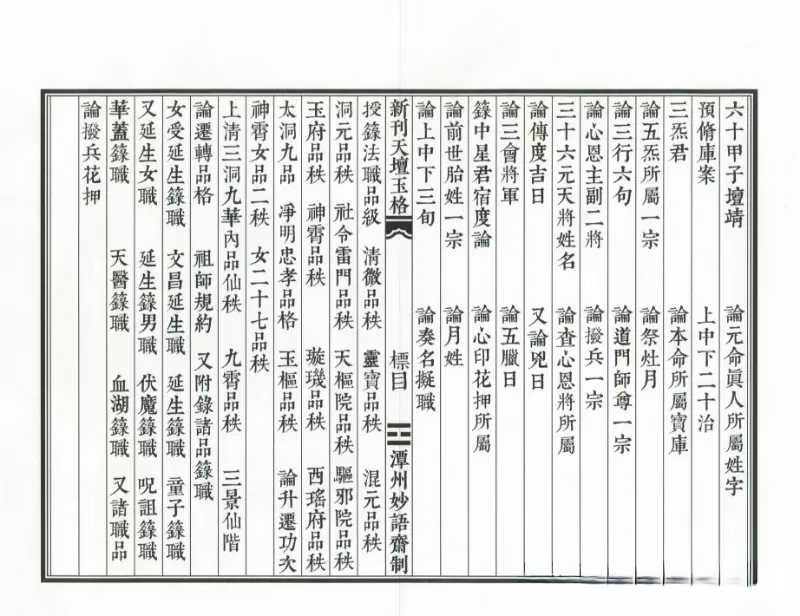 六十甲子壇靖 論元命眞人所屬姓字
預脩庫案 上中下二十治
三炁君 論本命所屬寶庫
論五炁所屬一宗 論祭灶月
論三行六句 論道門師尊一宗
論心恩主副二將 論撥兵一宗
三十六元天將姓名 論查心恩將所屬
論傳度吉日 又論兇日
論三會將軍 論五臘日
籙中星君宿度論 論心印花押所屬
論前世胎姓一宗 論月姓
論上中下三旬 論奏名擬職
新刊天壇玉格 標目 潭州妙語齋制
授籙法職品級 清微品秩 靈寶品秩 混元品秩
洞元品秩 社令雷門品秩 天樞院品秩 驅邪院品秩
玉府品秩 神霄品秩 璇璣品秩 西瑤府品秩
太洞九品 凈明忠孝品格 玉樞品秩 論升遷功次
神霄女品二秩 女二十七品秩
上清三洞九華內品仙秩 九霄品秩 三景仙階
論遷轉品格 祖師規約 又附錄諸品籙職
女受延生籙職 文昌延生職 延生籙職 童子籙職
又延生女職 延生籙男職 伏魔籙職 呪詛籙職
華蓋籙職 天醫籙職 血湖籙職 又諸職品
論撥兵花押